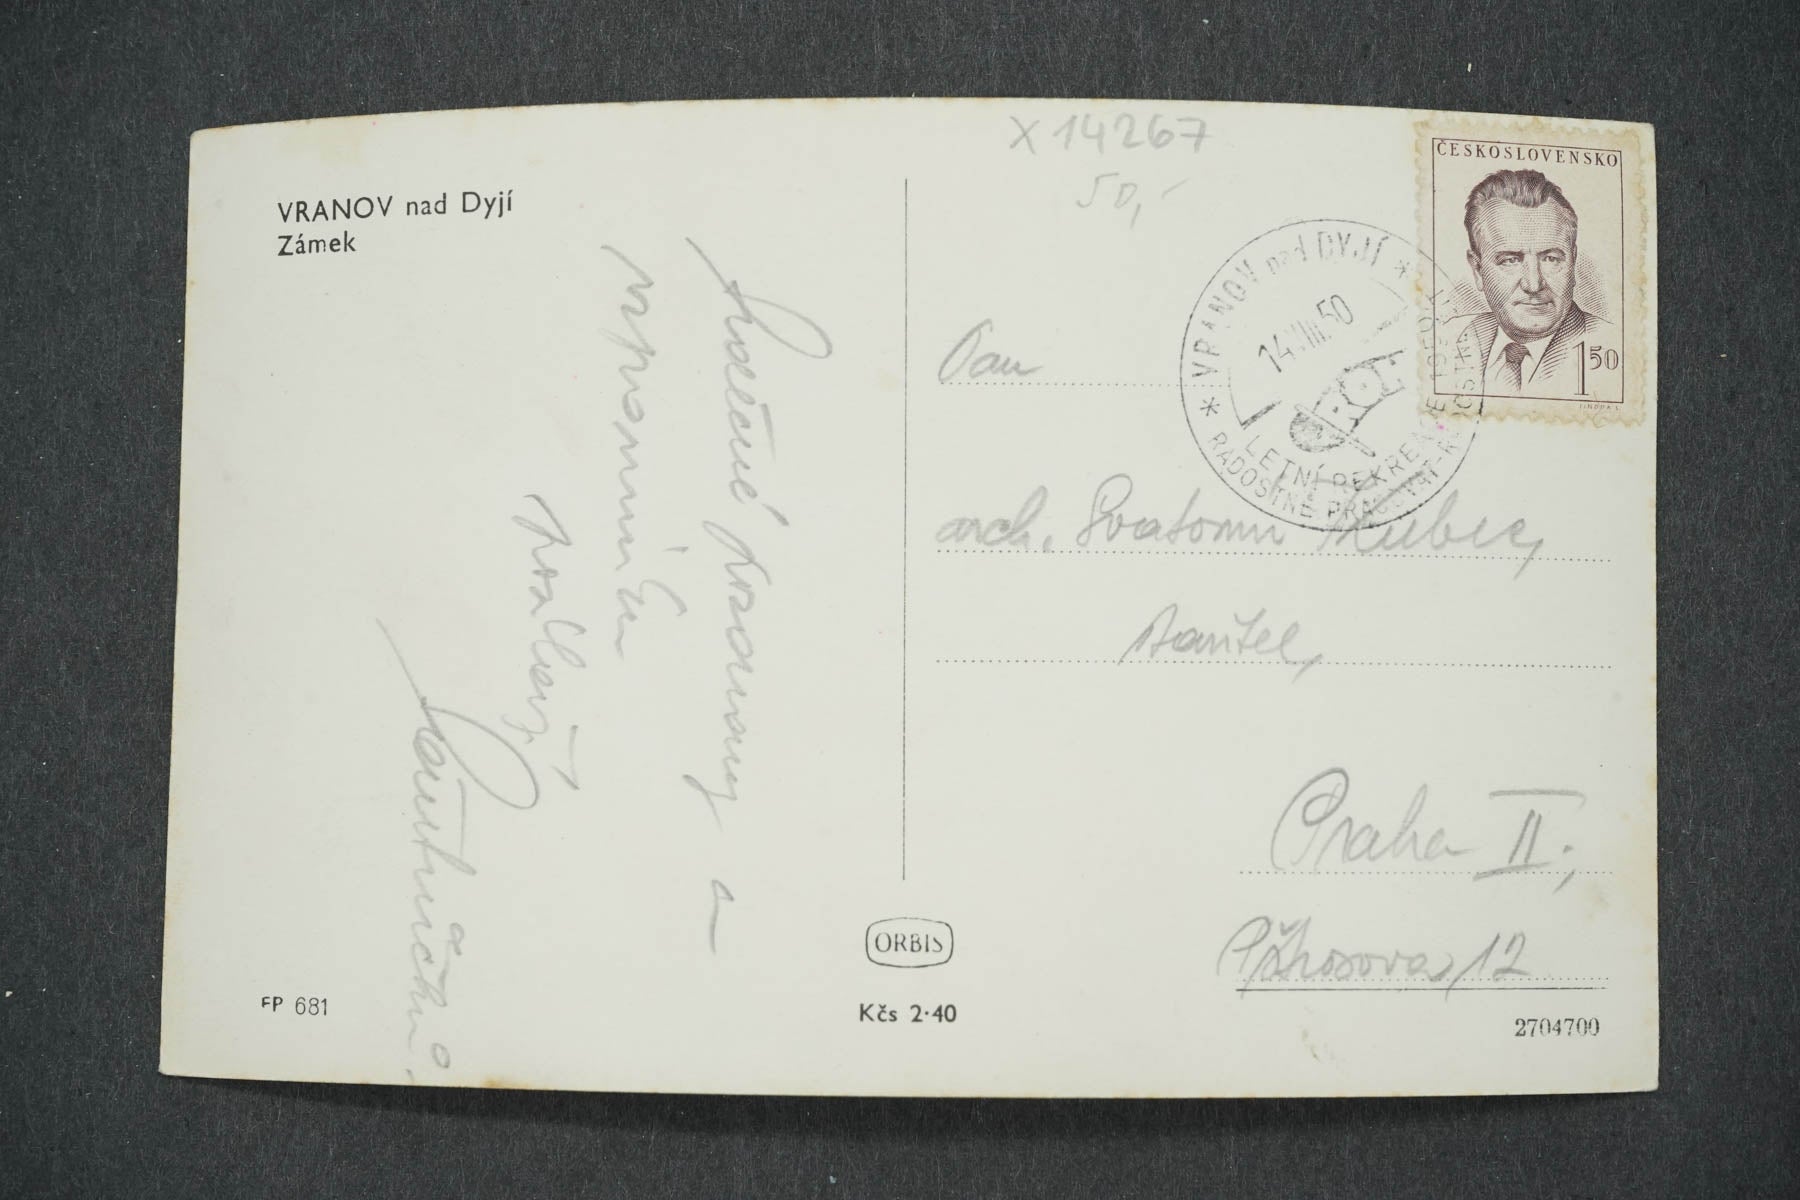 VRANOV nad Dyjí
Zámek
x 14267
50,-
ČESKOSLOVENSKO
1 50
JINDRA S.
* VRANOV nad DYJÍ *
14.VIII.50
ROH
LETNÍ REKREACE
RADOSTNĚ PRACOVAT-RADOSTNĚ
Pan
arch. Svatomir Zubec,
stavitel,
Praha II.,
12
Srdečné pozdravy a
vzpomínku
zasílají
ORBIS
Kčs 2·40
FP 681
2704700